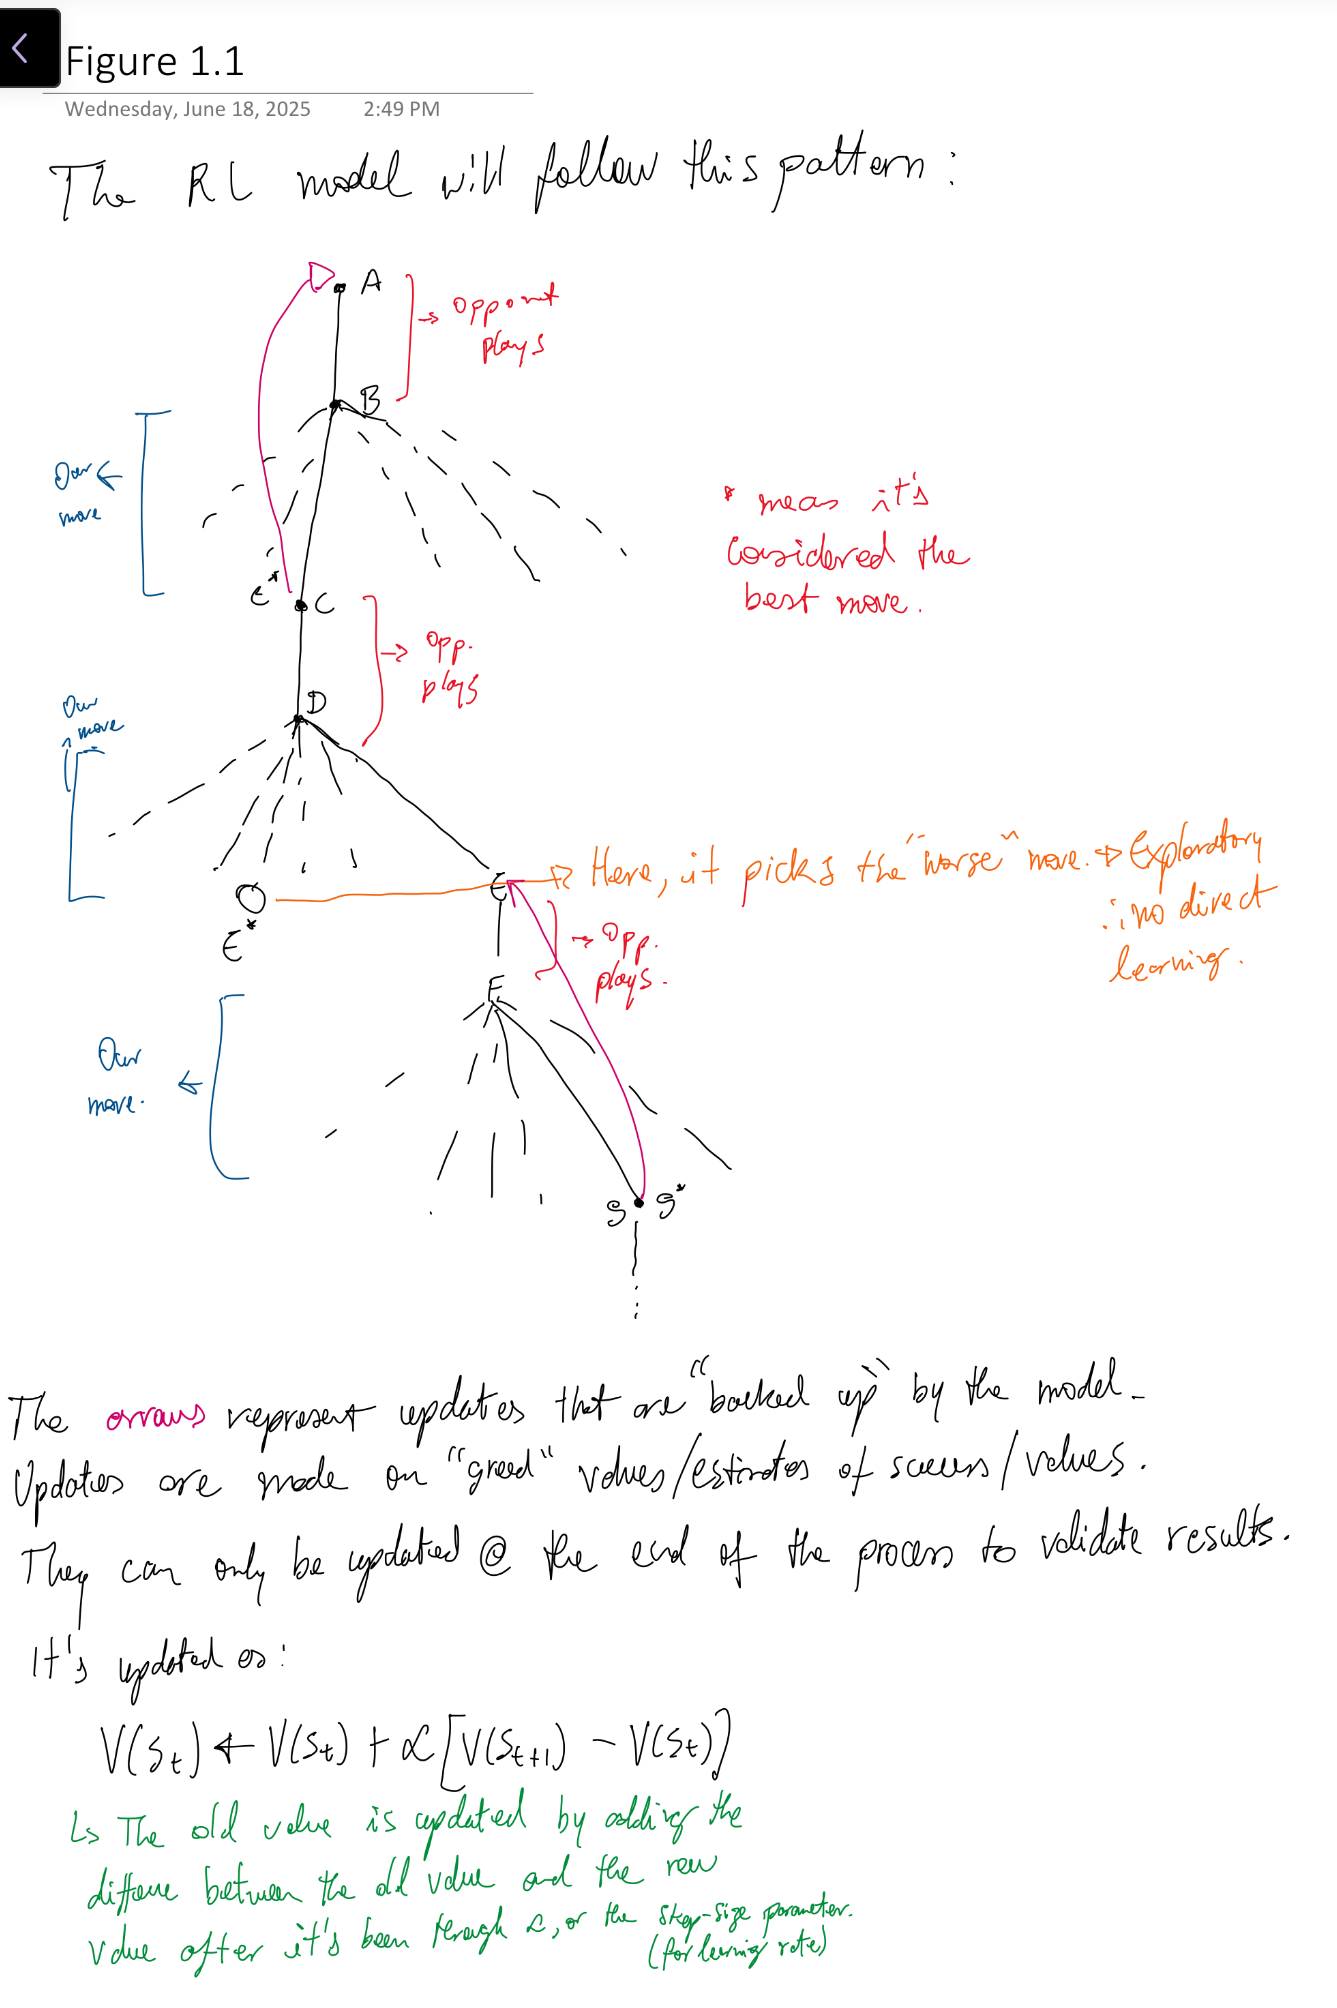 Figure 1.1
Wednesday, June 18, 2025 2:49 PM
The RL model will follow this pattern:
A
→ Opponent
plays
B
Our ←
move
* meas it's
considered the
best move.
C* C
→ Opp.
plays
Our
move
D
E → Here, it picks the "worse" move. → Exploratory
∴ no direct
learning.
E*
→ Opp.
plays.
F
Our ←
move.
S S*
The arrows represent updates that are "backed up" by the model.
Updates are made on "greed" values/estimates of success/values.
They can only be updated @ the end of the process to validate results.
It's updated as:
V(St) ← V(St) + α[V(St+1) - V(St)]
↳ The old value is updated by adding the
diffence between the old value and the new
value after it's been through α, or the step-size parameter.
(for learning rate)